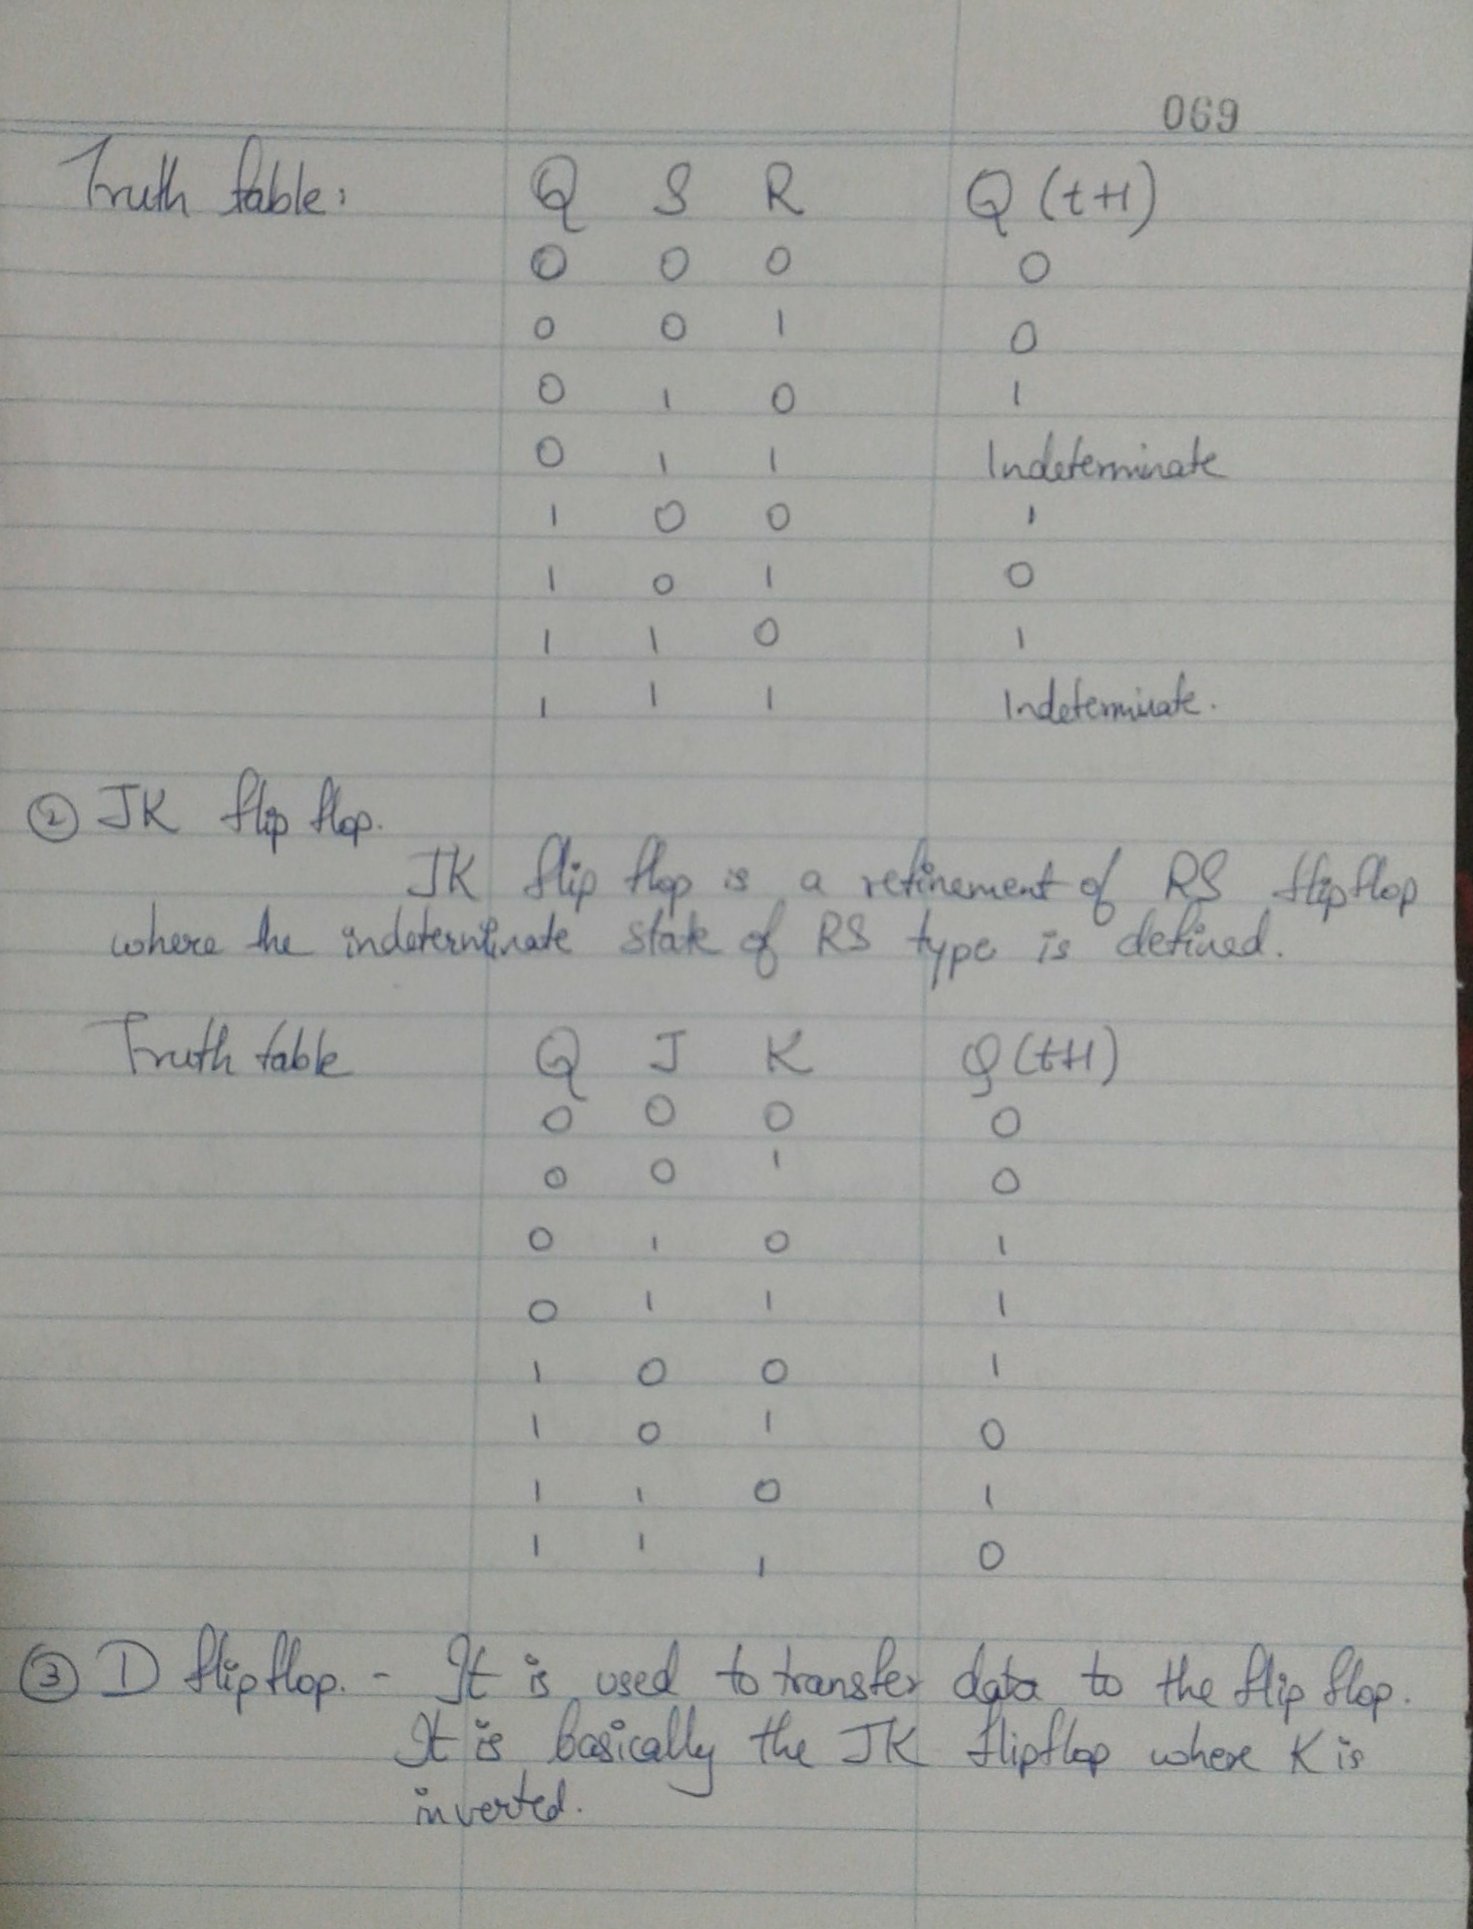 069
Truth table: Q S R Q (t+1)
0 0 0 0
0 0 1 0
0 1 0 1
0 1 1 Indeterminate
1 0 0 1
1 0 1 0
1 1 0 1
1 1 1 Indeterminate.
② JK flip flop.
JK flip flop is a refinement of RS flipflop
where the indeterminate state of RS type is defined.
Truth table Q J K Q (t+1)
0 0 0 0
0 0 1 0
0 1 0 1
0 1 1 1
1 0 0 1
1 0 1 0
1 1 0 1
1 1 1 0
③ D flipflop. - It is used to transfer data to the flip flop.
It is basically the JK flipflop where K is
inverted.